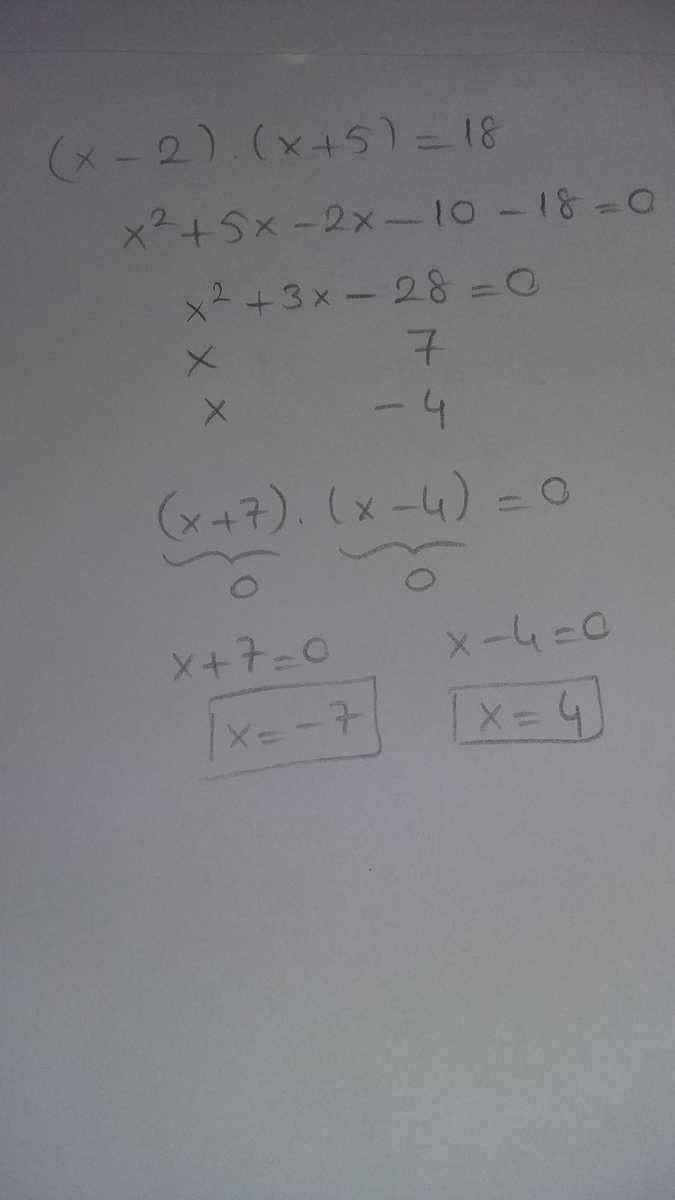 (x-2).(x+5)=18
x²+5x-2x-10-18=0
x²+3x-28=0
x 7
x -4
(x+7).(x-4)=0
0 0
x+7=0 x-4=0
x=-7 x=4